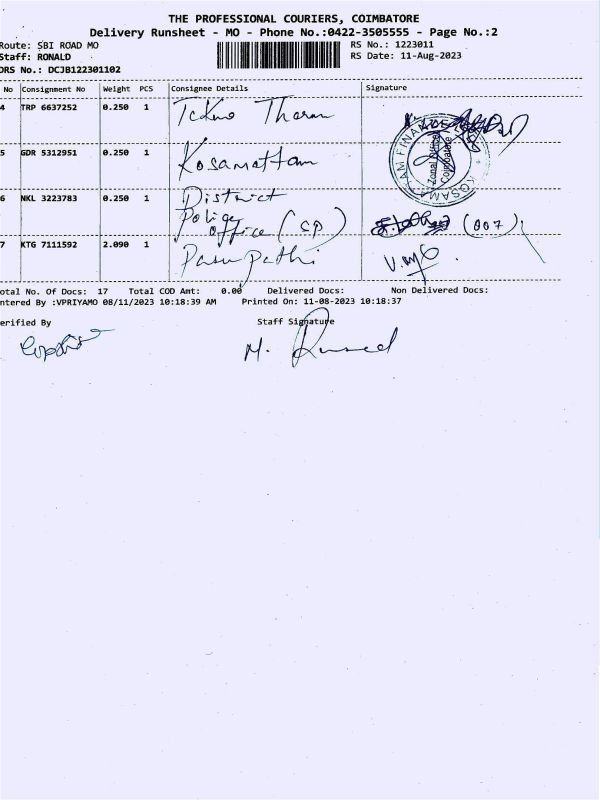 THE PROFESSIONAL COURIERS, COIMBATORE
Delivery Runsheet - MO - Phone No.:0422-3505555 - Page No.:2
Route: SBI ROAD MO
RS No.: 1223011
Staff: RONALD
RS Date: 11-Aug-2023
DRS No.: DCJB122301102
No Consignment No Weight PCS Consignee Details Signature
4 TRP 6637252 0.250 1 Tharan
5 GDR 5312951 0.250 1 Kosamattam
KOSAMATTAM FINANCE
Zonal Office
Coimbatore
6 NKL 3223783 0.250 1 District
Police
office (CP) (007)
7 KTG 7111592 2.090 1 Pasupathi
otal No. Of Docs: 17 Total COD Amt: 0.00 Delivered Docs: Non Delivered Docs:
ntered By :VPRIYAMO 08/11/2023 10:18:39 AM Printed On: 11-08-2023 10:18:37
erified By Staff Signature
M.